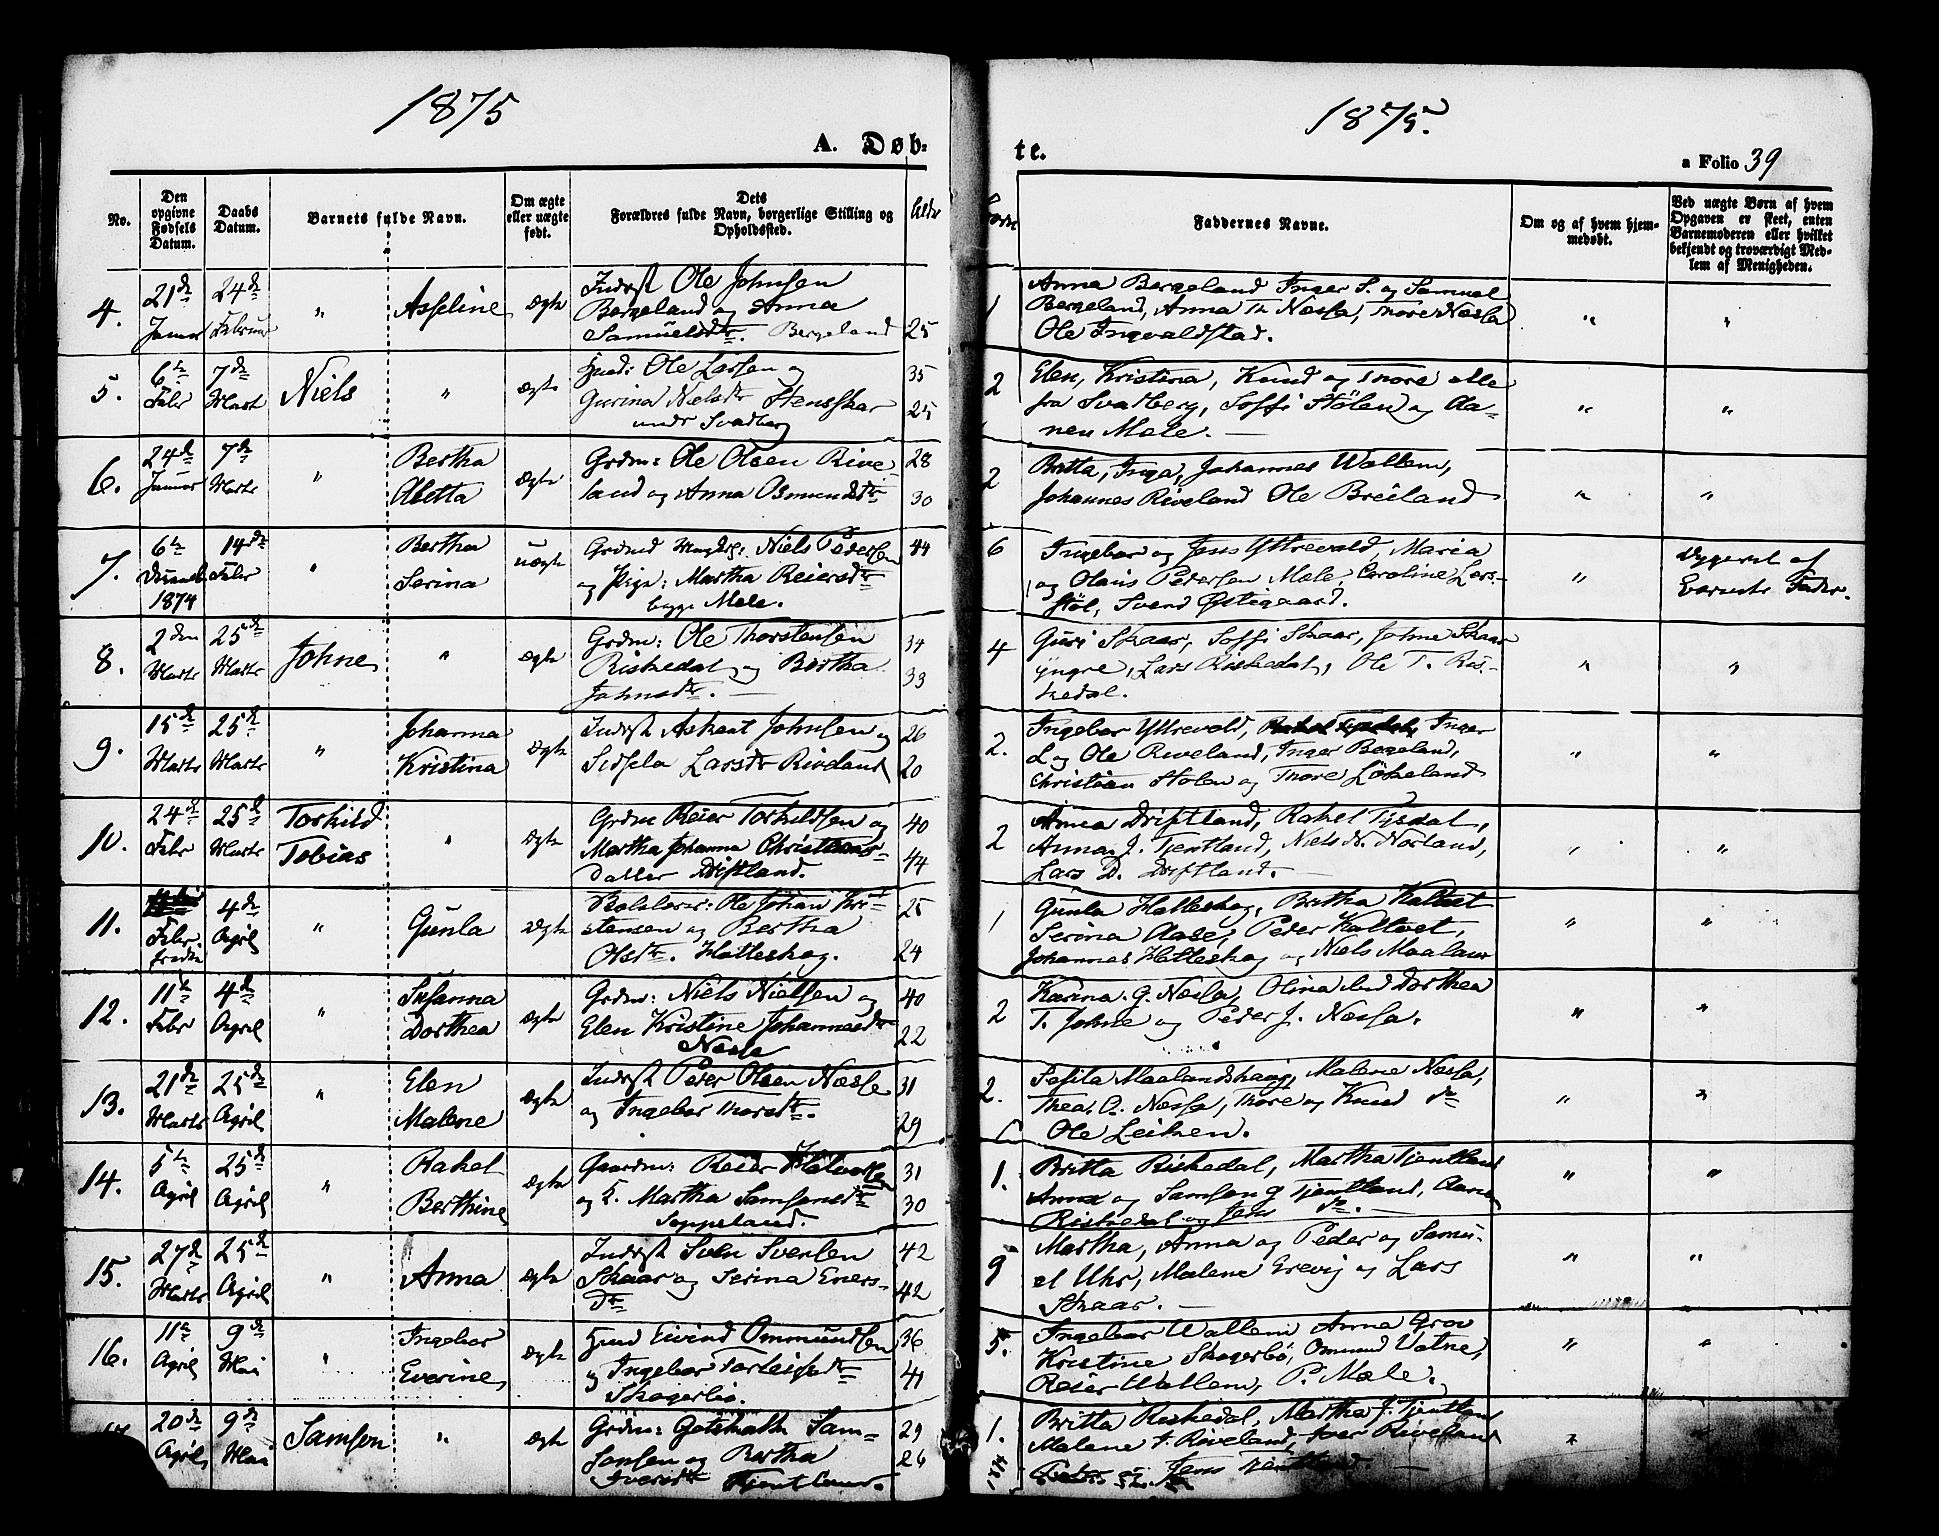 1875
1875.
A. Døb-
te.
a Folio 39
No.
Den opgivne Fødsels Datum.
Daabs Datum.
Barnets fulde Navn.
Om ægte eller uægte født.
Dets Forældres fulde Navn, borgerlige Stilling og Opholdssted.
Faddernes Navne.
Om og af hvem hjemmedøbt.
Ved uægte Børn af hvem Opgaven er skeet, enten Barnemoderen eller hvilket bekjendt og troværdigt Medlem af Menigheden.
4.
21de Januar
24de Februar
"
Asseline
Ægte
Inderst Ole Johnsen
Bergeland og Anna
Samuelsdtr. Bergeland
25
1
Anna Bergeland Inger S. og Samuel
Bergeland, Anna Th Næssa, Thore Næssa
Ole Ingvaldstad.
"
"
5.
6te Febr
7de Marts
Niels
"
ægte
Huusm: Ole Larsen og
Gurina Nielsdtr Stensskar
under Svadberg
35
25
2
Elen, Kristina, Knud og Thore alle
fra Svadberg, Soffi Stölen og Aa-
nen Mæle.
"
"
6.
24de Januar
7de Marts
"
Bertha
Aletta
Ægte
Grdm: Ole Olsen Rive-
land og Anna Osmundsdtr
28
30
2
Britta, Inga, Johannes Wallem,
Johannes Riveland Ole Breiland
"
"
7.
6te
Decemb
1874
14de Febr
"
Bertha
Serina
uægte
Grdmd Niels Pedersen
og Pige: Martha Reiersdtr
begge Mæle.
44
6
Ingebor og Jens Yttrevold, Maria
og Olaus Pedersen Mæle, Caroline Lars-
støl, Svend Østigaard.
"
Opgivet af
Barnets Fader.
8.
2den Marts
25de Marts
Johne
"
ægte
Grdm: Ole Thorstensen
Riskedal og Bertha
Johnsdtr.
34
33
4
Guri Skaar, Soffi Skaar, Johne Skaar
yngre, Lars Riskedal, Ole T. Ris-
kedal.
"
"
9.
15de Marts
25de Marts
"
Johanna
Kristina
Ægte
Inderst Askout Johnsen og
Sidsela Larsdtr Riveland
26
20
2.
Ingebor Yttrevold, Inger
L og Ole Riveland, Inger Bergeland,
Christian Stölen og Thore Lökeland
"
"
10.
24de Febr
25de Marts
Torkild
Tobias
"
Ægte
Grdm Reier Torkildsen og
Martha Johanna Christians-
datter Driftland.
40
44
2
Anna Driftland, Rakel Tysdal,
Anna J. Tjentland, Niels N. Norland,
Lars D. Driftland.
"
"
11.
Febr.
4de April
"
Gunla
Ægte
Ole Johan Kri-
stensen og Bertha
Olsdtr. Hatleskog.
25
24
1
Gunla Hatleskog, Britha Kaltvet
Serina Aase, Peder Kaltvet,
Johannes Hatleskog og Niels Maaland
"
"
12.
11te Febr
4de April
"
Susanna
Dorthea
ægte
Grdm: Niels Nielsen og
Elen Kristine Johannesdtr
Næsse
40
22
2
Karina G. Næssa, Olina Dorthea
T. Johne og Peder J. Næssa.
"
"
13.
21de Marts
25de April
"
Elen
Malene
Ægte
Inderst Peder Olsen Næsse
og Ingebor Thorsdtr.
31
29
2.
Sesila Maalandshaug, Malene Næssa,
Thea O. Næssa, Thore og Knud do
Ole Leiken.
"
"
14.
5te April
25de April
"
Rakel
Berthine
Ægte
Gaardm: Reier Halvorsen
og K. Martha Samsonsdtr
Soppeland.
31
30
1.
Britta Riskedal, Martha Tjentland
Anna og Samson G Tjentland, Aanen
Riskedal og Jens do.
"
"
15.
27de Marts
25de April
"
Anna
Ægte
Inderst Sven Svensen
Skaar og Serina Eners-
dtr
42
42
9
Martha, Anna og Peder og Samu-
el Uhr, Malene Erevig og Lars
Skaar.
"
"
16.
11te April
9de Mai
"
Ingebor
Everine
Ægte
Huusm Eivind Ommundsen
og Ingebor Torleifsdtr
Skogerbø.
36
41
5.
Ingebor Wallem Anna Grov
Kristine Skogerbö, Ommund Vatne,
Reier Wallem, P. Mæle.
"
"
20de April
9de Mai
Samson
"
Ægte
Grdm: Gotskalk Sam-
sonsen og Bertha
Iversdtr Tjentland.
29
26
1.
Britta Riskedal, Martha J. Tjentland
Malene T. Riveland, Iver Riveland
Jens Tjentland
"
"